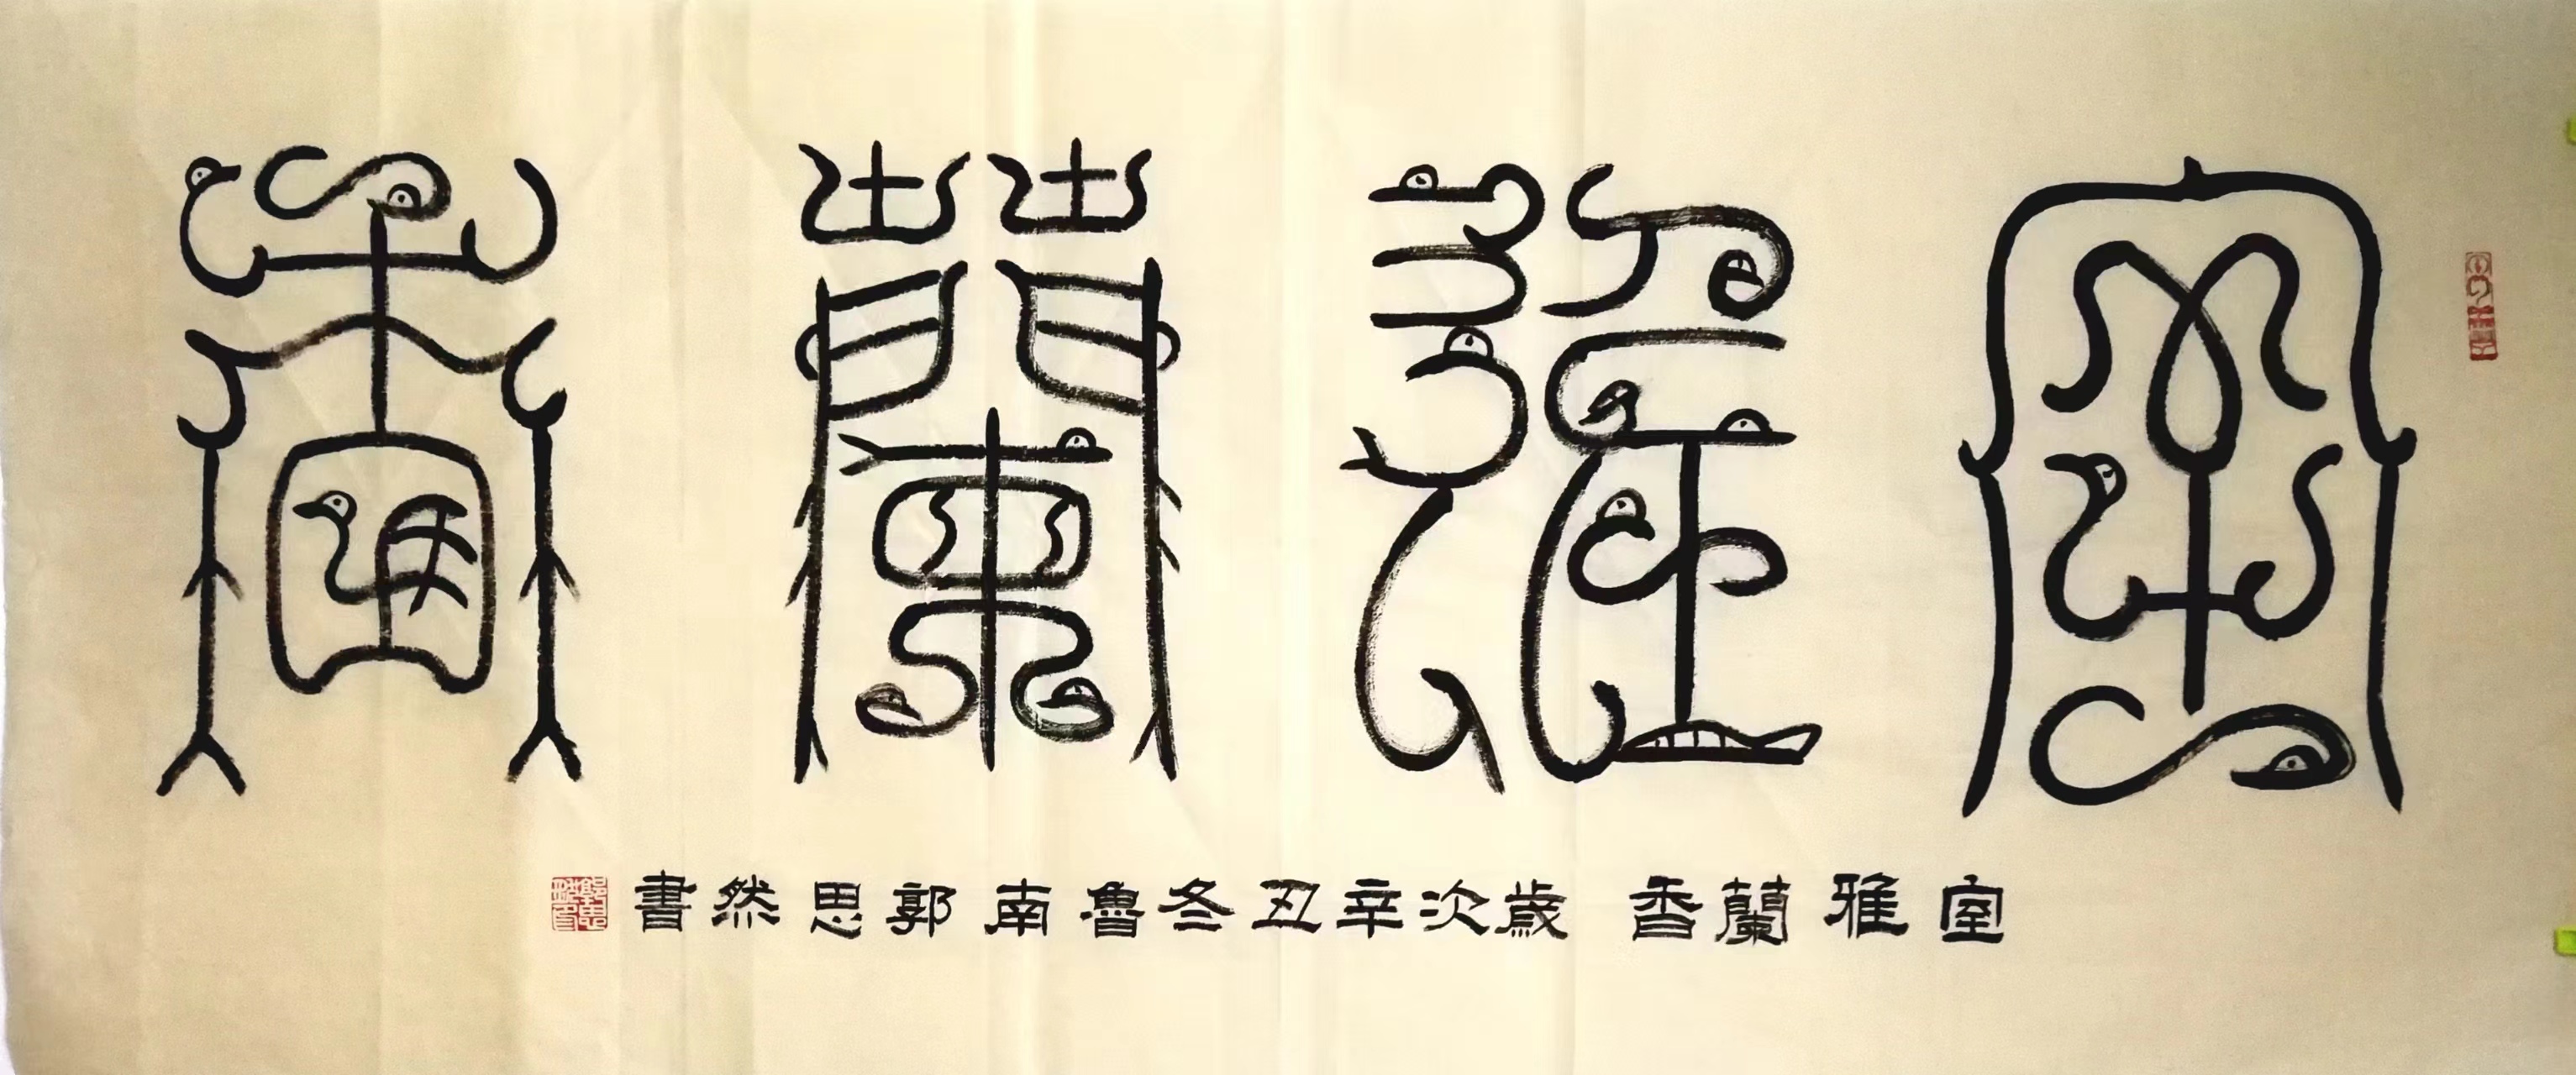 室雅蘭香
室雅蘭香 歲次辛丑冬魯南郭思然書